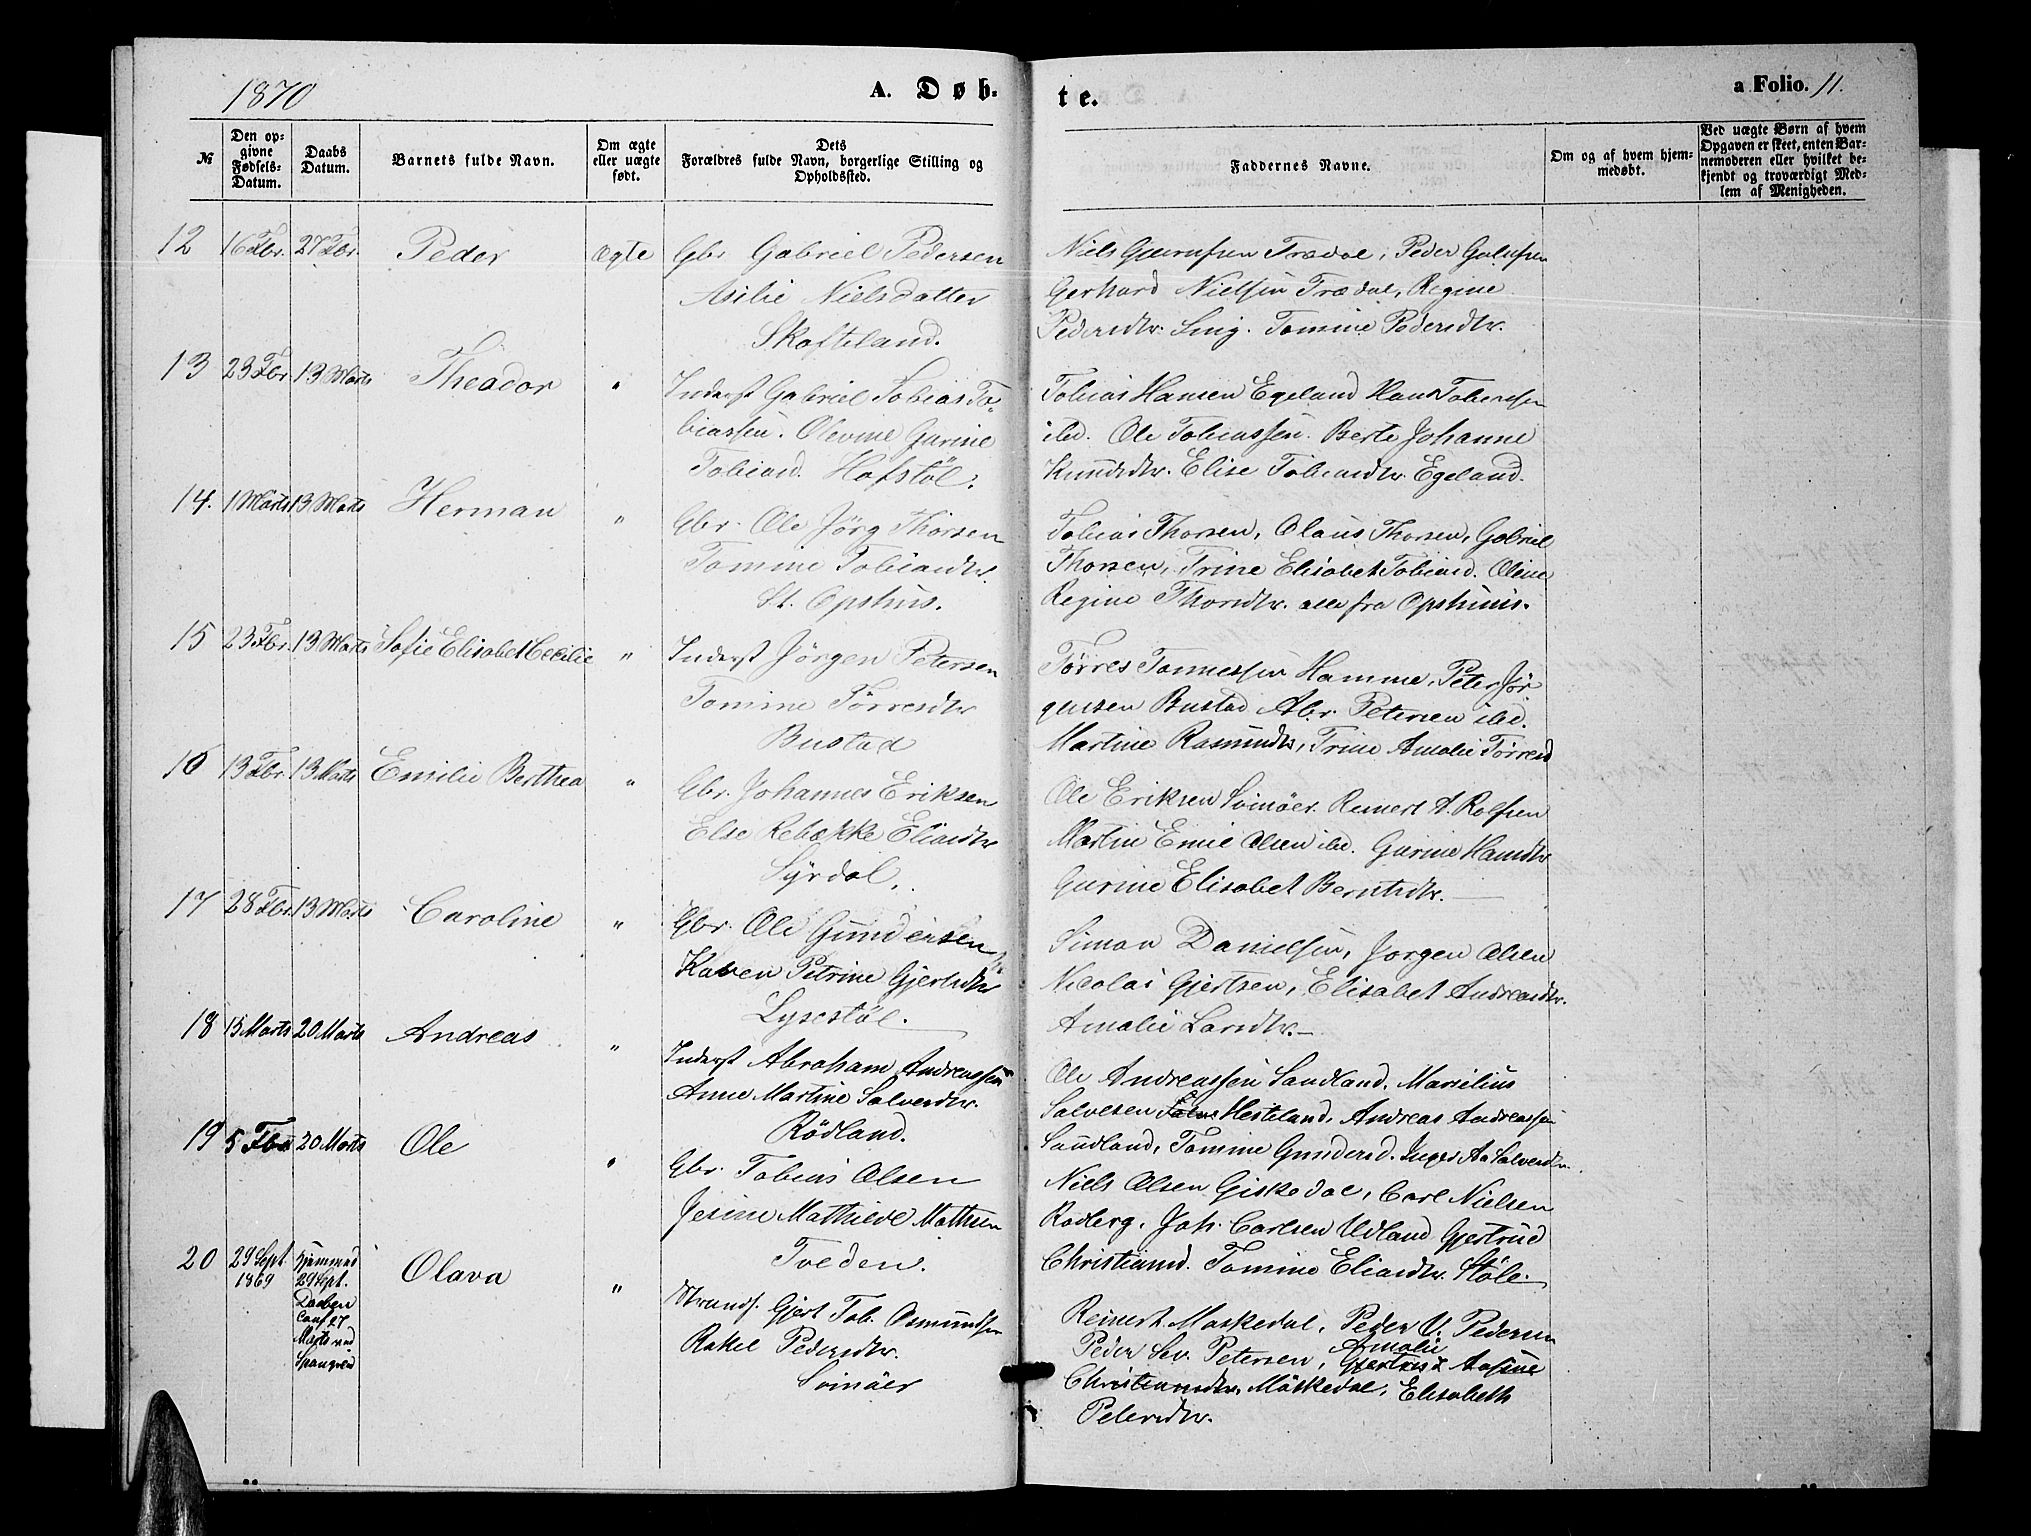 1870
A. Døb-
te.
a Folio. 11.
№
Den op-
givne
Fødsels-
Datum.
Daabs
Datum.
Barnets fulde Navn.
Om ægte
eller uægte
født.
Dets
Forældres fulde Navn, borgerlige Stilling og
Opholdssted.
Faddernes Navne.
Om og af hvem hjem-
medøbt.
Ved uægte Børn af hvem
Opgaven er skeet, enten Bar-
nemoderen eller hvilket be-
kjendt og troværdigt Med-
lem af Menigheden.
12 16 Fbr. 27 Fbr. Peder Ægte Gbr Gabriel Pedersen
Asilie Nielsdatter
Skofteland.
Niels Trædal, Peder
Gerhard Nielsen Trædal, Regine
Pedersdtr. Tomine Pedersdtr.
13 23 Fbr. 13 Marts Theador " Inderst Gabriel Tobias To-
biassen. Olevine Gurine
Tobiasd. Hofstöl.
Tobias Hansen Egeland Hans Tobiassen
ibd. Ole Tobiassen. Berte Johanne
Knudsdtr. Elise Tobiasdtr. Egeland.
14. 1 Marts 13 Marts Herman " Gbr. Ole Jörg Thorsen
Tomine Tobiasdtr.
St. Opshus.
Tobias Thorsen, Olaus Thorsen, Gabriel
Thorsen, Trine Elisabet Tobiasd. Oline
Regine Thorsdtr. alle fra Opshuus.
15 23 Fbr. 13 Marts Sofie Elisabet Cecilie " Inderst Jörgen Petersen
Tomine Törresdtr
Bustad
Törres Tonnessen Hamme, Peter Jör
gensen Bustad Abr. Petersen ibd.
Martine Rasmusdtr, Trine Amalie Törresd
16 13 Fbr. 13 Marts Emilie Berthea " Gbr. Johannes Eriksen
Else Rebekke Eliasdtr
Syrdal.
Ole Eriksen Svinöer. Reinert A. Rolfsen
Martin Emil Olsen ibd. Gurine Hansdtr
Gurine Elisabet Berntsdtr.
17 28 Fbr. 13 Marts Caroline " Gbr. Ole Gundersen
Karen Petrine Gjertsdtr
Lysestöl.
Simon Danielsen, Jorgen Olsen
Nicolai Gjertsen, Elisabet Andreasdtr.
Amalie Larsdtr.
18 13 Marts 20 Marts Andreas " Inderst Abraham Andreassen
Anne Martine Salvesdtr.
Rödland.
Ole Andreassen Sandland, Marselius
Salvesen Hesteland, Andreas Andreassen
Sandland, Tomine Gundersd. Inger Aa Salvesdtr.
19 5 Fbr 20 Marts Ole " Gbr. Tobias Olsen
Jesine Mathilde Mathsen
Tveden.
Niels Olsen Giskedal, Carl Nielsen
Rodberg, Joh. Carlsen Udland Gjertrud
Christiansd. Tomine Eliasdtr. Støle.
20 29 Sept
1869
hjemmed
29 Sept.
Daaben
conf 27
Marts ved
Spangreid
Olava " Strands. Gjert Tob. Osmundsen
Rakel Pedersdtr.
Svinöer
Reinert Moskedal, Peder V. Pedersen
Peder Sev. Petersen, Amalie
Christiansdtr. Möskedal, Elisabeth
Petersdtr.